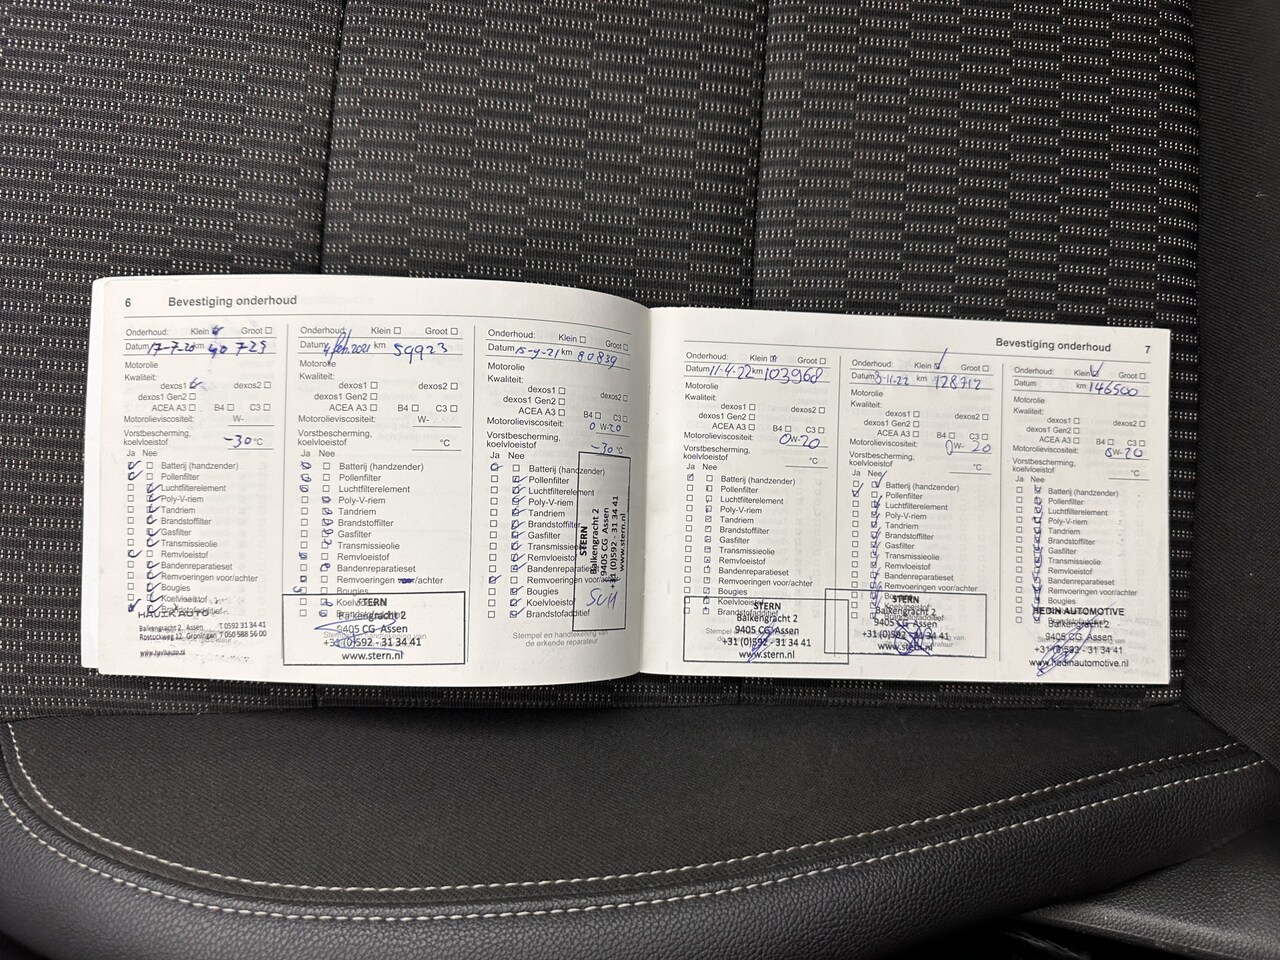 6 Bevestiging onderhoud
Onderhoud: Klein Groot
Datum 17-7-20 km 40 723
Motorolie
Kwaliteit:
dexos1 dexos2
dexos1 Gen2
ACEA A3 B4 C3
Motorolieviscositeit: W-
Vorstbescherming,
koelvloeistof -30 °C
Ja Nee
Batterij (handzender)
Pollenfilter
Luchtfilterelement
Poly-V-riem
Tandriem
Brandstoffilter
Gasfilter
Transmissieolie
Remvloeistof
Bandenreparatieset
Remvoeringen voor/achter
Bougies
Koelvloeistof
Brandstofadditief
Balkengracht 2, Assen T 0592 31 34 41
Rostockweg 12, Groningen T 050 588 56 00
Onderhoud: Klein Groot
Datum 4 feb. 2021 km 59923
Motorolie
Kwaliteit:
dexos1 dexos2
dexos1 Gen2
ACEA A3 B4 C3
Motorolieviscositeit: W-
Vorstbescherming,
koelvloeistof °C
Ja Nee
Batterij (handzender)
Pollenfilter
Luchtfilterelement
Poly-V-riem
Tandriem
Brandstoffilter
Gasfilter
Transmissieolie
Remvloeistof
Bandenreparatieset
Remvoeringen voor/achter
Bougies
Koelvloeistof
STERN
Balkengracht 2
9405 CG Assen
+31 (0)592 - 31 34 41
www.stern.nl
Onderhoud: Klein Groot
Datum km 80839
Motorolie
Kwaliteit:
dexos1 dexos2
dexos1 Gen2
ACEA A3 B4 C3
Motorolieviscositeit: 0 W-20
Vorstbescherming,
koelvloeistof -30 °C
Ja Nee
Batterij (handzender)
Pollenfilter
Luchtfilterelement
Poly-V-riem
Tandriem
Brandstoffilter
Gasfilter
Transmissieolie
Remvloeistof
Bandenreparatieset
Remvoeringen voor/achter
Bougies
Koelvloeistof
Brandstofadditief
Stempel en handtekening van
de erkende reparateur
STERN
Balkengracht 2
9405 CG Assen
+31 (0)592 - 31 34 41
www.stern.nl
Bevestiging onderhoud 7
Onderhoud: Klein Groot
Datum 11-4-22 km 103968
Motorolie
Kwaliteit:
dexos1 dexos2
dexos1 Gen2
ACEA A3 B4 C3
Motorolieviscositeit: 0W-20
Vorstbescherming,
koelvloeistof °C
Ja Nee
Batterij (handzender)
Pollenfilter
Luchtfilterelement
Poly-V-riem
Tandriem
Brandstoffilter
Gasfilter
Transmissieolie
Remvloeistof
Bandenreparatieset
Remvoeringen voor/achter
Bougies
Koelvloeistof
Brandstofadditief
STERN
Balkengracht 2
9405 CG Assen
+31 (0)592 - 31 34 41
www.stern.nl
Onderhoud: Klein Groot
Datum km 128712
Motorolie
Kwaliteit:
dexos1 dexos2
dexos1 Gen2
ACEA A3 B4 C3
Motorolieviscositeit: 0W-20
Vorstbescherming,
koelvloeistof °C
Ja Nee
Batterij (handzender)
Pollenfilter
Luchtfilterelement
Poly-V-riem
Tandriem
Brandstoffilter
Gasfilter
Transmissieolie
Remvloeistof
Bandenreparatieset
Remvoeringen voor/achter
Bougies
STERN
Balkengracht 2
9405 CG Assen
+31 (0)592 - 31 34 41
www.stern.nl
Onderhoud: Klein Groot
Datum km 146500
Motorolie
Kwaliteit:
dexos1 dexos2
dexos1 Gen2
ACEA A3 B4 C3
Motorolieviscositeit: 0W-20
Vorstbescherming,
koelvloeistof °C
Ja Nee
Batterij (handzender)
Pollenfilter
Luchtfilterelement
Poly-V-riem
Tandriem
Brandstoffilter
Gasfilter
Transmissieolie
Remvloeistof
Bandenreparatieset
Remvoeringen voor/achter
Bougies
Koelvloeistof
HEDIN AUTOMOTIVE
Balkengracht 2
9405 CG Assen
+31 (0)592 - 31 34 41
www.hedinautomotive.nl